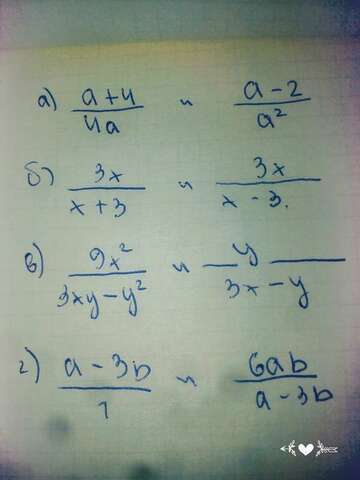 а) a+4/4a и a-2/a²
б) 3x/x+3 и 3x/x-3.
в) 9x²/3xy-y² и y/3x-y
г) a-3b/1 и 6ab/a-3b